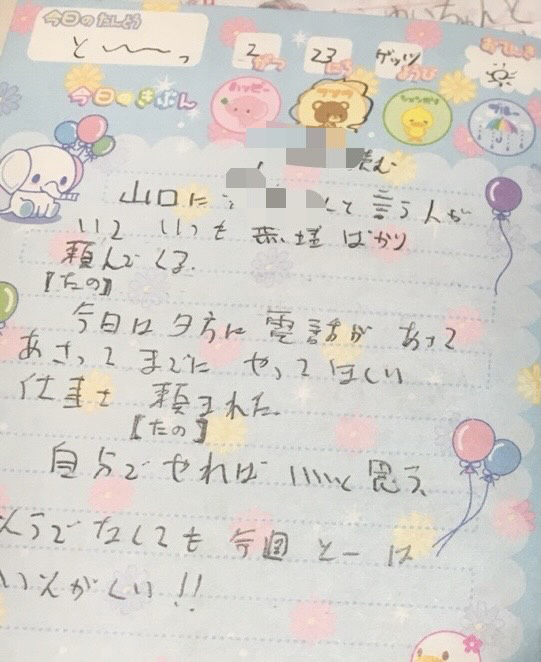 わいちゃんと
今日のたんとう
と～～っ
2 がつ 23 にち ゲッツ ようび
おてんき
今日のきぶん
ハッピー
シュンカン
ブルー
読む
山口に て言う人が
いて いつも 無理 ばかり
頼んでくる.
【たの】
今日は夕方に 電話が あって
あさってまでに やってほしい
仕事を 頼まれた.
【たの】
自分でやれば いいと思う
そうでなくても 今週 とーは
いそがしい!!